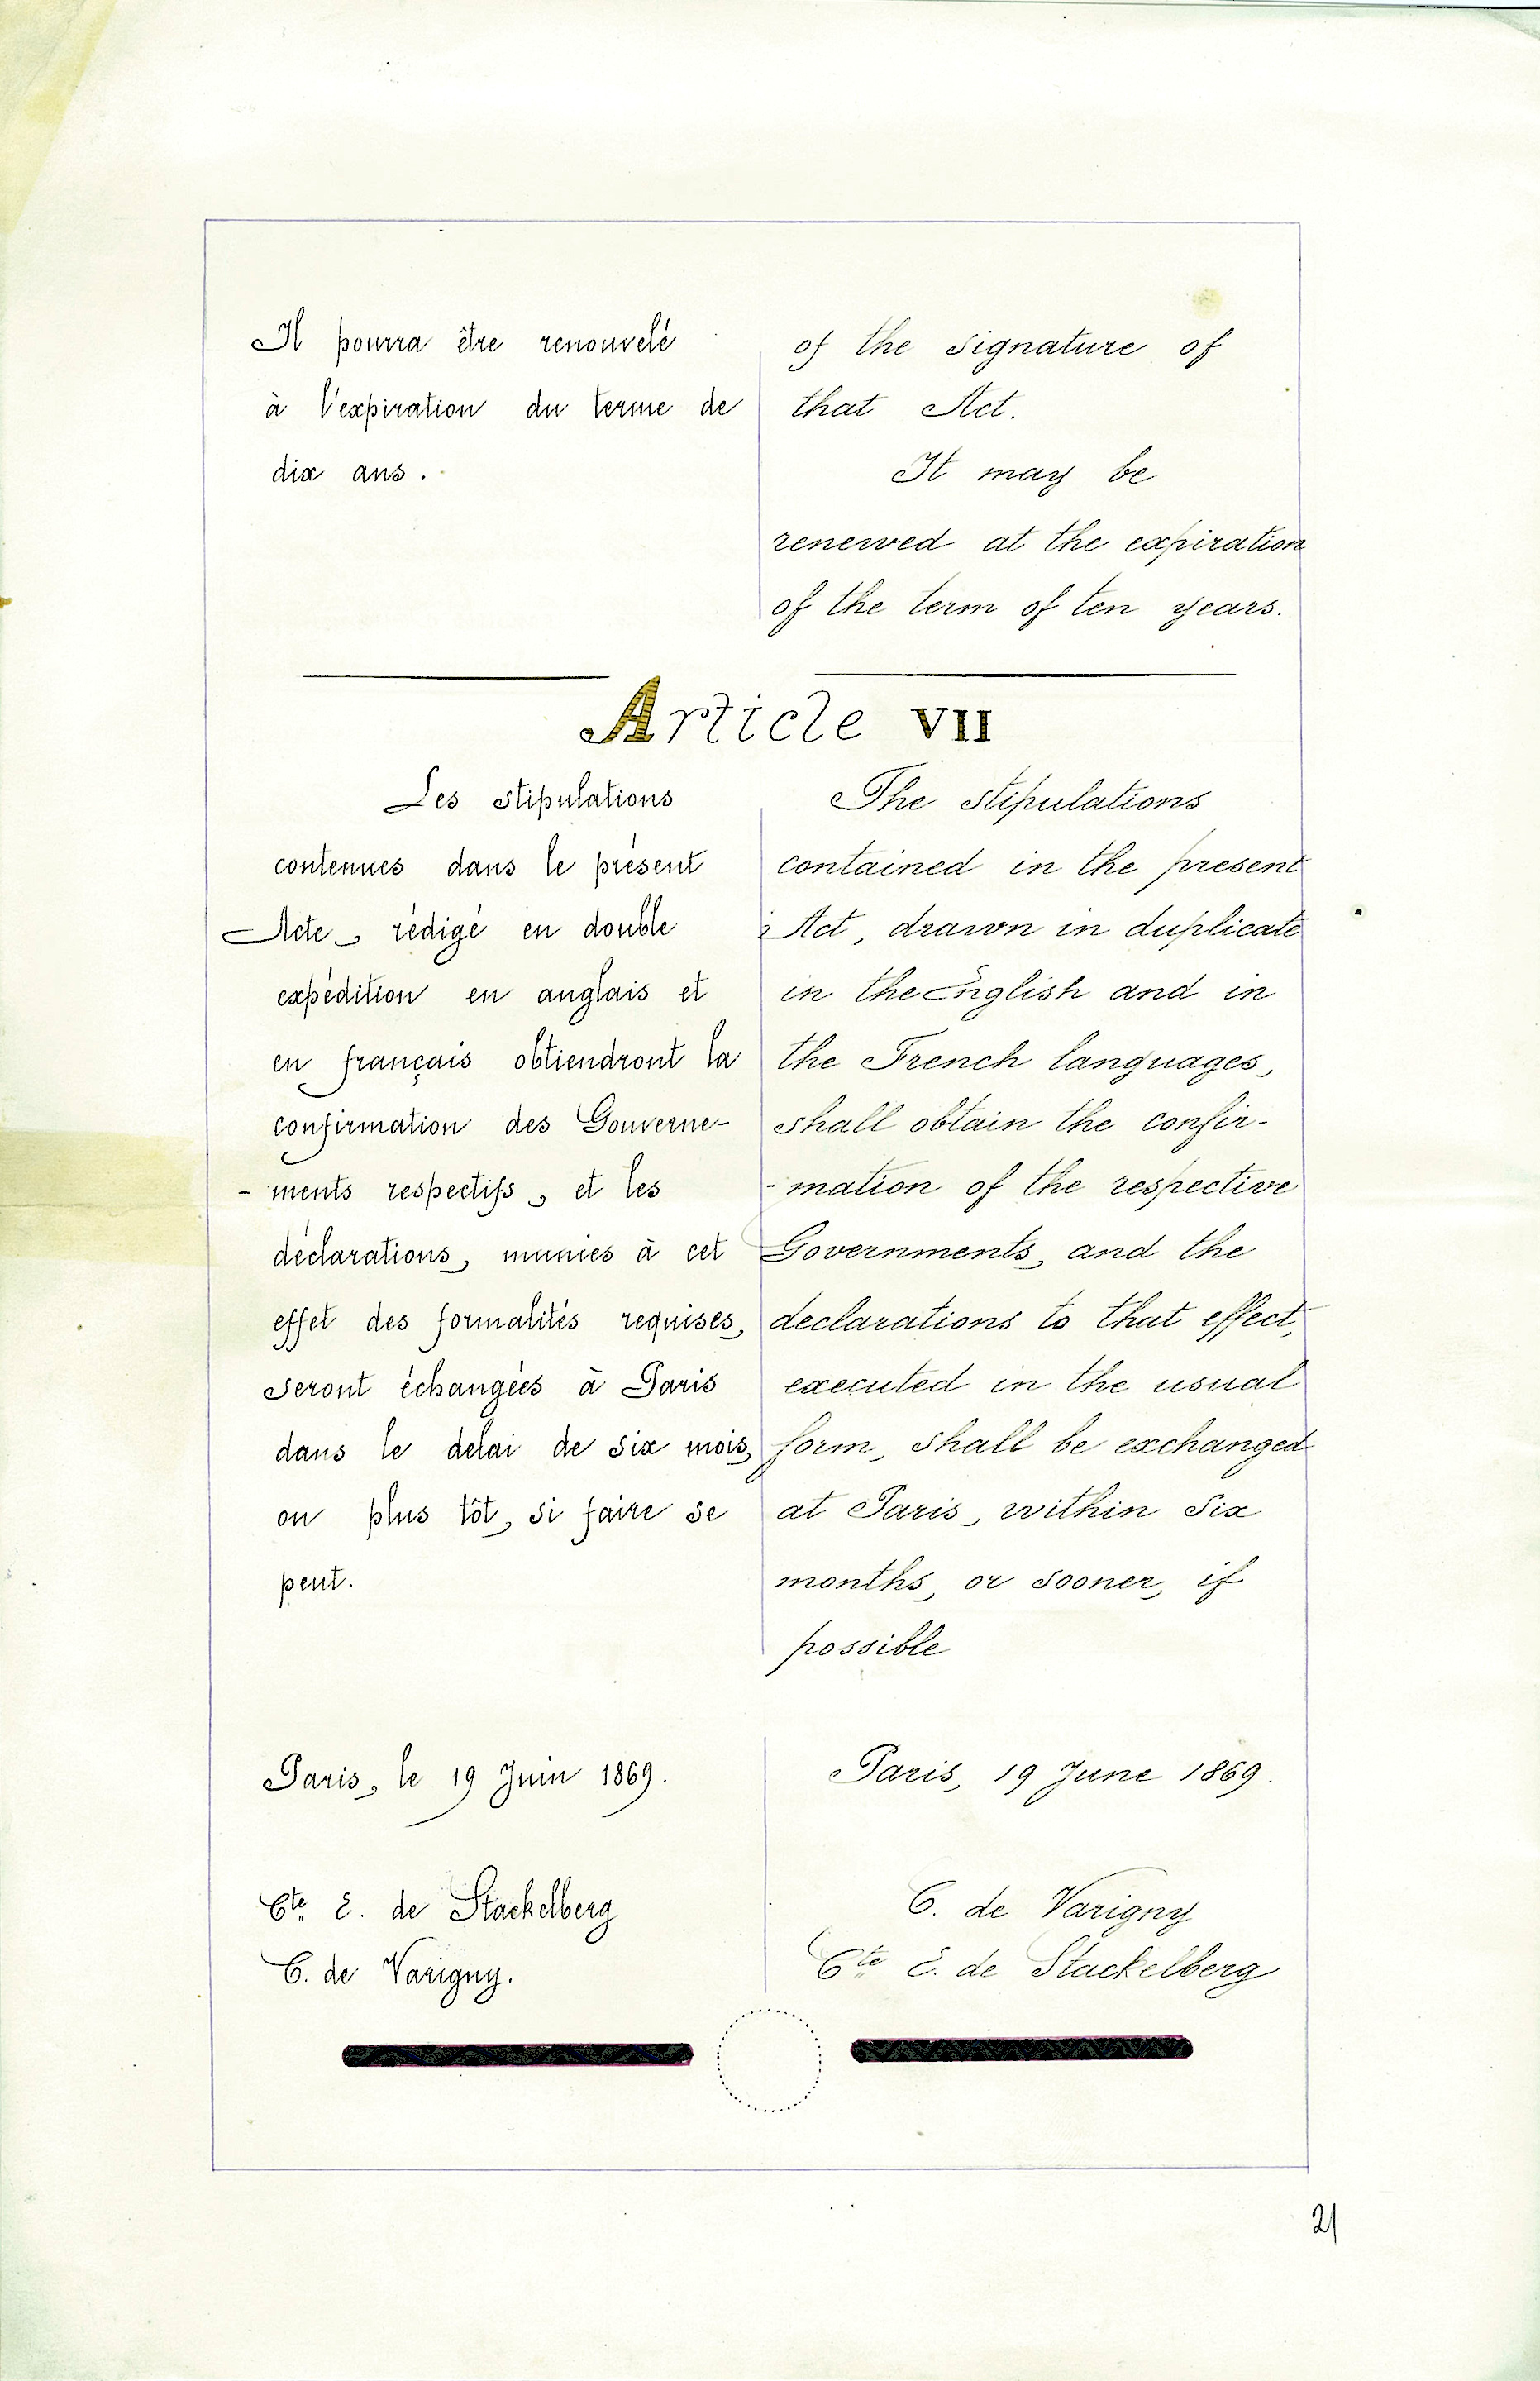 Il pourra être renouvelé
à l'expiration du terme de
dix ans.
of the signature of
that Act.
It may be
renewed at the expiration
of the term of ten years.
Article VII
Les stipulations
contenues dans le présent
Acte, rédigé en double
expédition en anglais et
en français obtiendront la
confirmation des Gouverne-
-ments respectifs, et les
déclarations, munies à cet
effet des formalités requises,
seront échangées à Paris
dans le délai de six mois,
ou plus tôt, si faire se
peut.
The stipulations
contained in the present
Act, drawn in duplicate
in the English and in
the French languages,
shall obtain the confir-
-mation of the respective
Governments, and the
declarations to that effect,
executed in the usual
form, shall be exchanged
at Paris, within six
months, or sooner, if
possible
Paris, le 19 Juin 1869.
Cte. E. de Stackelberg
C. de Varigny.
Paris, 19 June 1869.
C. de Varigny
Cte E. de Stackelberg
21